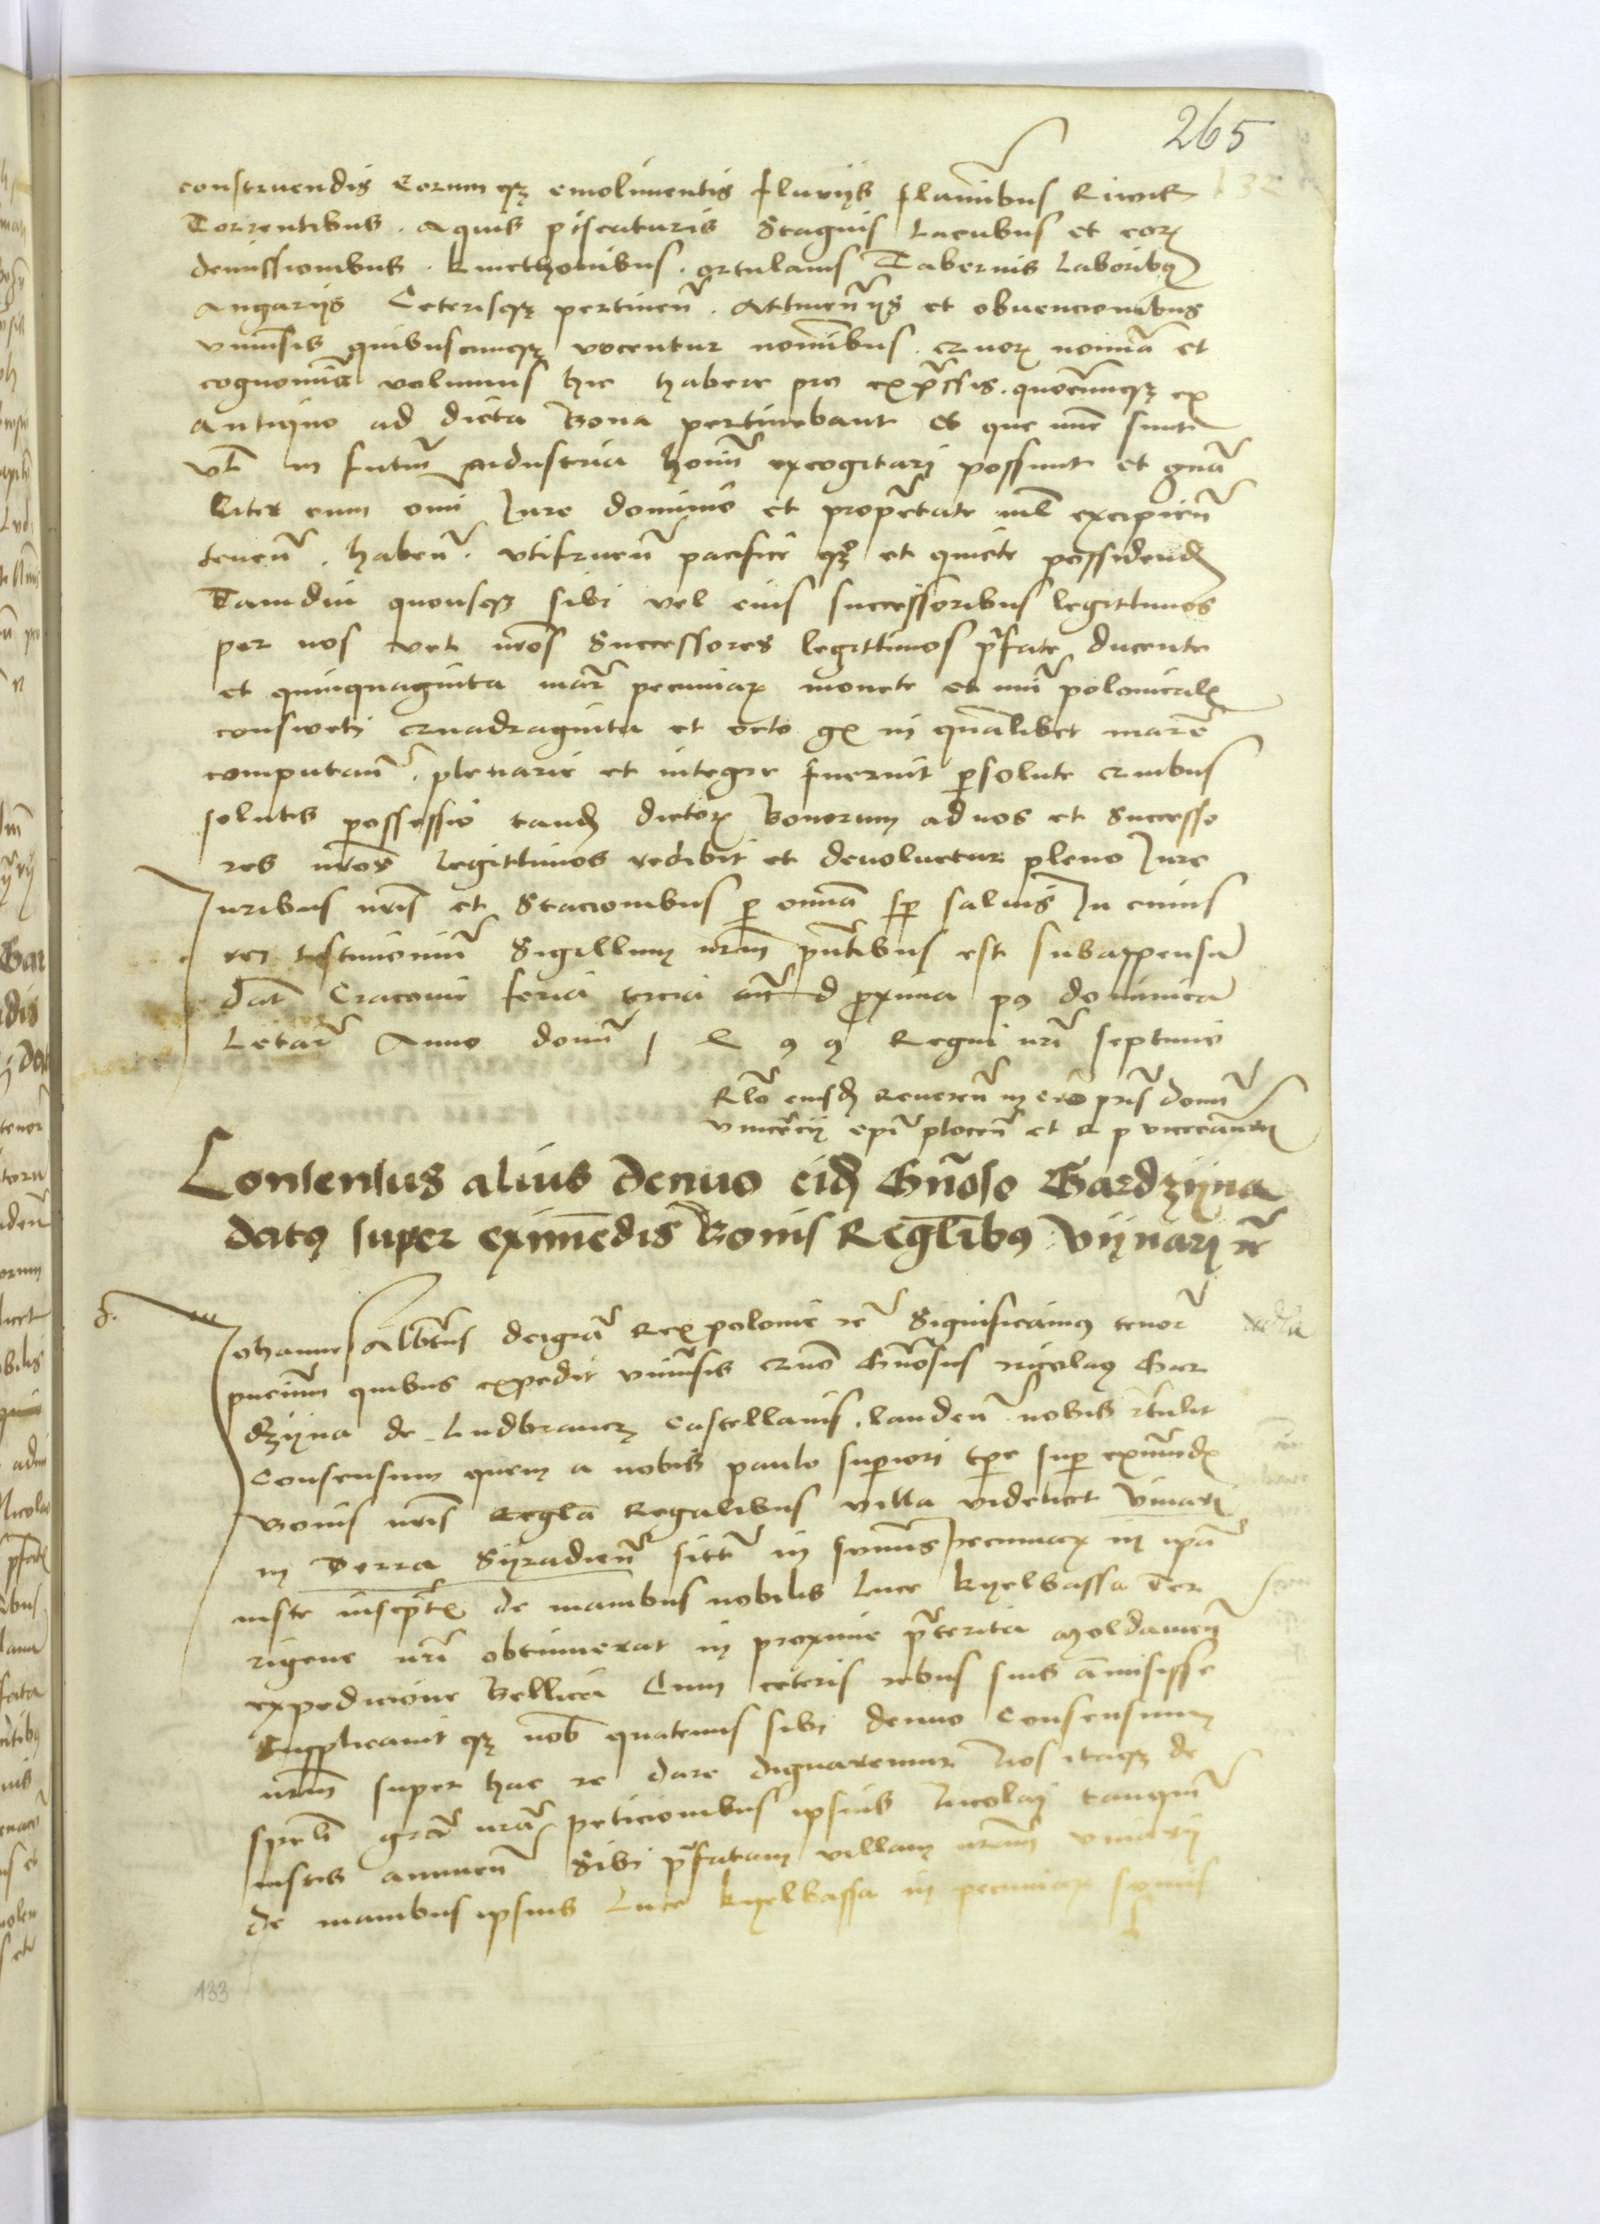 265
construendis Eorumqz emolimentis fluvijs flaminibus Riwlis
Torrentibus . Aquis piscaturis Stagnis Lacubus et eorum
demissionibus . kmethonibus . ortulanis Tabernis Laboribus
Angarijs Ceterisqz pertinen . Attinencijs et obvencionibus
universis quibuscumqz vocentur nominibus . quorum nomina et
cognomina volumus hic habere pro expressis . quecumqz ex
Antiquo ad dicta Bona pertinebant Et que nunc sunt
vel in futurum industria hominum excogitari possunt et genera
liter cum omni Jure dominio et proprietate nihil excipiendo
tenen . haben . utifruen pacifice qz et quiete possidend
Tamdiu quousqz sibi vel eius successoribus legittimos
per nos vel nros Successores legittimos prefate ducente
et quinquaginta marc pecuniarum monete et numeri polonicalis
consweti Quadraginta et octo gr in quamlibet marcam
computan . plenarie et integre fuerint persolute Quibus
solutis possessio tandem dictorum Bonorum ad nos et Successo
res nros Legittimos redibit et devolvetur pleno Jure
Juribus nris et Stacionibus per omnia semper salvis In cuius
rei testimonium Sigillum nrum presentibus est subappensum
dat Cracovie feria tercia proxima post dominicam
Letare Anno domini Regni nri septimo
Rlo eiusdem Reveren in Christo pris domini
Vincencij epi plocen et R p vicecancellarij
Consensus alius denuo eidem Generoso Gardzyna
datus super eximendis Bonis Reglibus Vynary etc
Johannes Albertus dei gra Rex polonie etc Significamus tenore
presencium quibus expedit universis Quomodo Generosus Nicolaus Gar
dzyna de Ludbrancz Castellanus . landen . nobis retulit
Consensum quem a nobis paulo superiori tempore super eximendis
Bonis nris Regalibus villa videlicet Vinari
in Terra Syradien sitis in summis pecuniarum in ipsa
iuste inscriptis de manibus nobilis Luce kyelbassa Ter
rigene nri obtinuerat in proxime preterita Moldavien
expedicione Bellica Cum ceteris rebus suis amisisse
Supplicavit qz nobis quatenus sibi denuo Consensum
nrum super hac re dare dignaremur Nos itaqz de
speciali gracia nra peticionibus ipsius Nicolai tanquam
iustis annuen Sibi prefatam villam nram vinary
de manibus ipsius Luce kyelbassa in pecuniarum summis
133